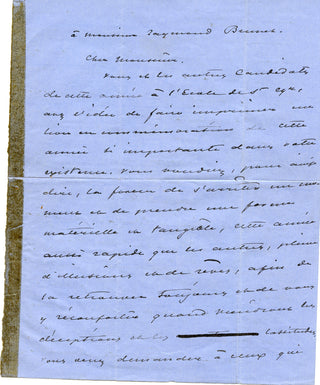 à monsieur Raymond Brunet.
Cher Monsieur.
Vous et les autres Candidats
de cette année à l'Ecole de St Cyr,
avez l'idée de faire imprimer un
lion en commémoration de cette
année si importante dans votre
existence. Vous voudriez, pour ainsi
dire, la forcer de s'arrêter un mo
ment et de prendre une forme
matérielle et tangible, cette année
aussi rapide que les autres, pleine
d'illusions et de rêves, afin de
la retrouver toujours et de vous
y réconforter quand viendront les
déceptions et les lassitudes,
vous venez demander à ceux qui